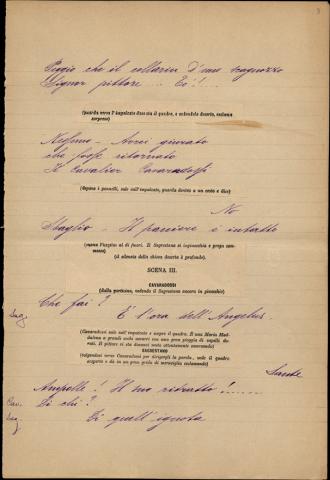 3
Peggio che il collarin d'uno scagnozzo
Signor pittore ... Eh!...
(guarda verso l'impalcato dove sta il quadro, e vedendolo deserto, esclama
sorpreso)
Nessuno - Avrei giurato
che fosse ritornato
Il Cavalier Cavaradossi
(depone i pennelli, sale sull'impalcato, guarda dentro a un cesto e dice)
No
Sbaglio - Il paniere è intatto
(suona l'Angelus al di fuori. Il Sagrestano si inginocchia e prega som-
messo)
(il silenzio della chiesa diventa più profondo).
SCENA III.
CAVARADOSSI
(dalla porticina, vedendo il Sagrestano ancora in ginocchio)
Che fai?
Sag. È l'ora dell'Angelus.
(Cavaradossi sale sull'impalcato e scopre il quadro. È una Maria Mad-
dalena a grandi occhi azzurri con una gran pioggia di capelli do-
rati. Il pittore vi sta dinanzi muto attentamente osservando)
SAGRESTANO
(volgendosi verso Cavaradossi per dirigergli la parola, vede il quadro
scoperto e dà in un gran grido di meraviglia esclamando)
Sante
Ampolle! Il suo ritratto!......
Cav. Di chi?
Sag. Di quell'ignota